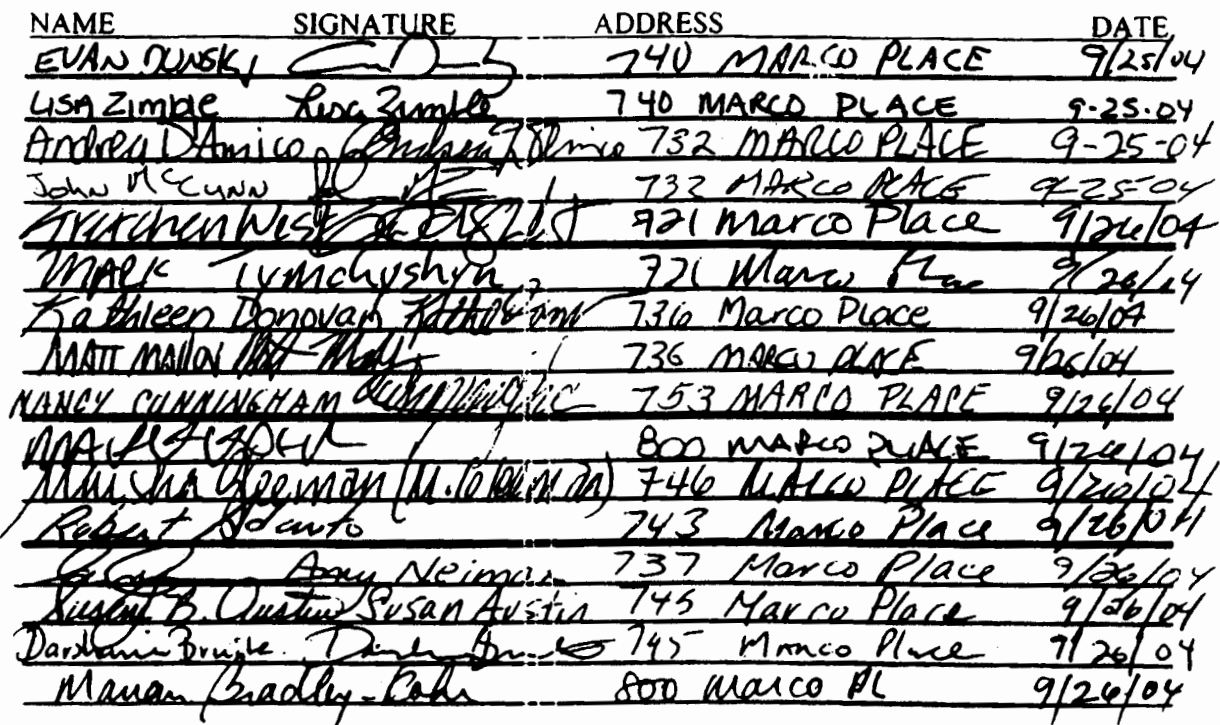 NAME SIGNATURE ADDRESS DATE
EVAN DUNSKY 740 MARCO PLACE 9/25/04
LISA Zimble Lisa Zimble 740 MARCO PLACE 9-25-04
Andrea D'Amico Andrea D'Amico 732 MARCO PLACE 9-25-04
John McCunn 732 MARCO PLACE 9-25-04
Gretchen West 721 Marco Place 9/26/04
MARK Tymchyshyn 721 Marco Place 9/26/04
Kathleen Donovan 736 Marco Place 9/26/04
MATT MALLOY 736 MARCO PLACE 9/26/04
NANCY CUNNINGHAM 753 MARCO PLACE 9/26/04
800 MARCO PLACE 9/26/04
Coleman (M. Coleman) 746 MARCO PLACE 9/26/04
Robert Adauto 743 Marco Place 9/26/04
Amy Neiman 737 Marco Place 9/26/04
Susan B. Austin Susan Austin 745 Marco Place 9/26/04
745 Marco Place 9/26/04
Bradley-Cohn 800 Marco PL 9/26/04